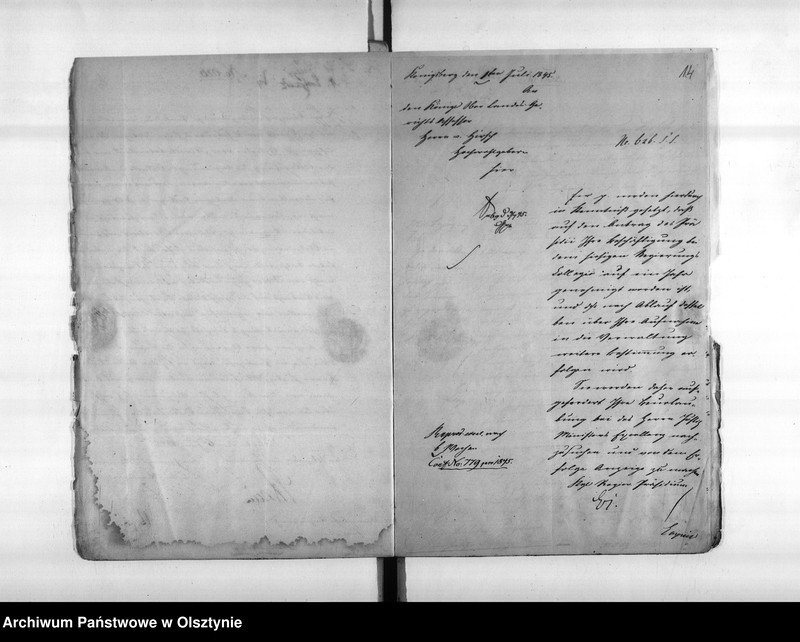 14
Königsberg den 8ten Juli 1845
An
den Königl Ober Landes Ge-
richts Assessor
Herrn v. Hirsch
Hochwohlgeboren
hier
No. 626. S. S.
werden hierdurch
in Kenntniß gesetzt, daß
auf den Antrag des Prä
sidii Ihre Beschäftigung bei
dem hiesigen Regierungs
Collegio auf ein Jahr
genehmigt worden ist,
und daß nach Ablauf dessel
ben über Ihre Aufnahme
in die Verwaltung
weitere Bestimmung er
folgen wird.
Sie werden daher auf-
gefordert Ihre Beurlau-
bung bei des Herrn Justiz
Ministers Excellenz nach
zusuchen und von dem Er
folge Anzeige zu machen
Kgl Regier Präsidium
nach
6 Wochen
No. 779 pro 1845.
Archiwum Państwowe w Olsztynie